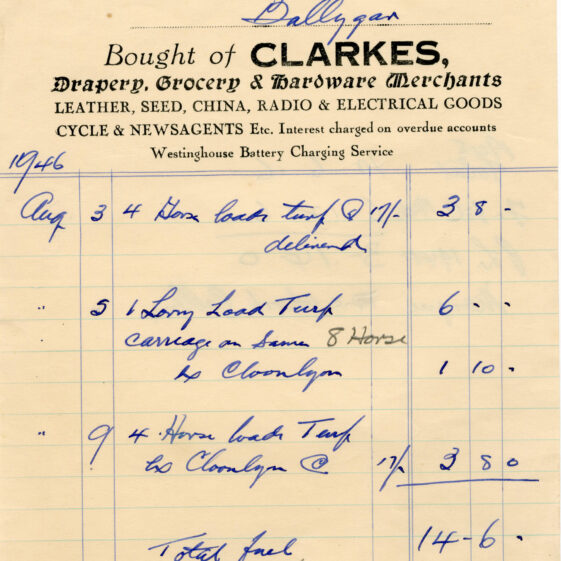 Ballygar
Bought of CLARKES,
Drapery, Grocery & Hardware Merchants
LEATHER, SEED, CHINA, RADIO & ELECTRICAL GOODS
CYCLE & NEWSAGENTS Etc. Interest charged on overdue accounts
Westinghouse Battery Charging Service
1946
Aug 3 4 Horse loads turf @ 17/- 3 8 -
delivered
" 5 1 Lorry Load Turf 6 - -
carriage on same 8 Horse
ex Cloonlyon 1 10 -
" 9 4 Horse loads Turf
ex Cloonlyon @ 17/- 3 8 0
Total fuel 14 - 6 -